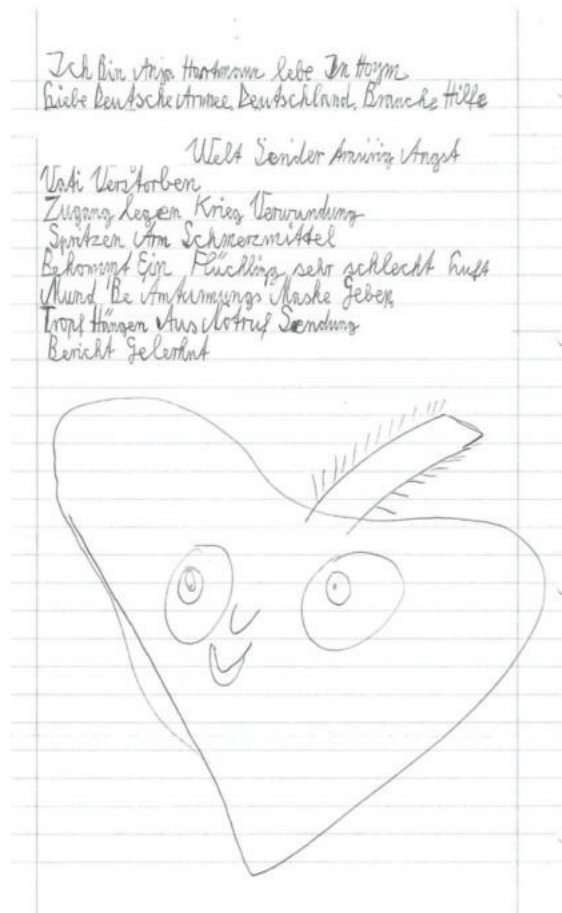 Ich Bin Anja Hartmann lebe In Hoym
Liebe Deutsche Armee Deutschland, Brauche Hilfe
Welt Sender Angst
Vati Verstorben
Zugang legen Krieg Verwundung
Spritzen Arm Schmerzmittel
Bekommt Ein Flüchling sehr schlecht Luft
Mund Be Maske Geben
Tropf Hängen Aus Notruf Sendung
Bericht Gelernt